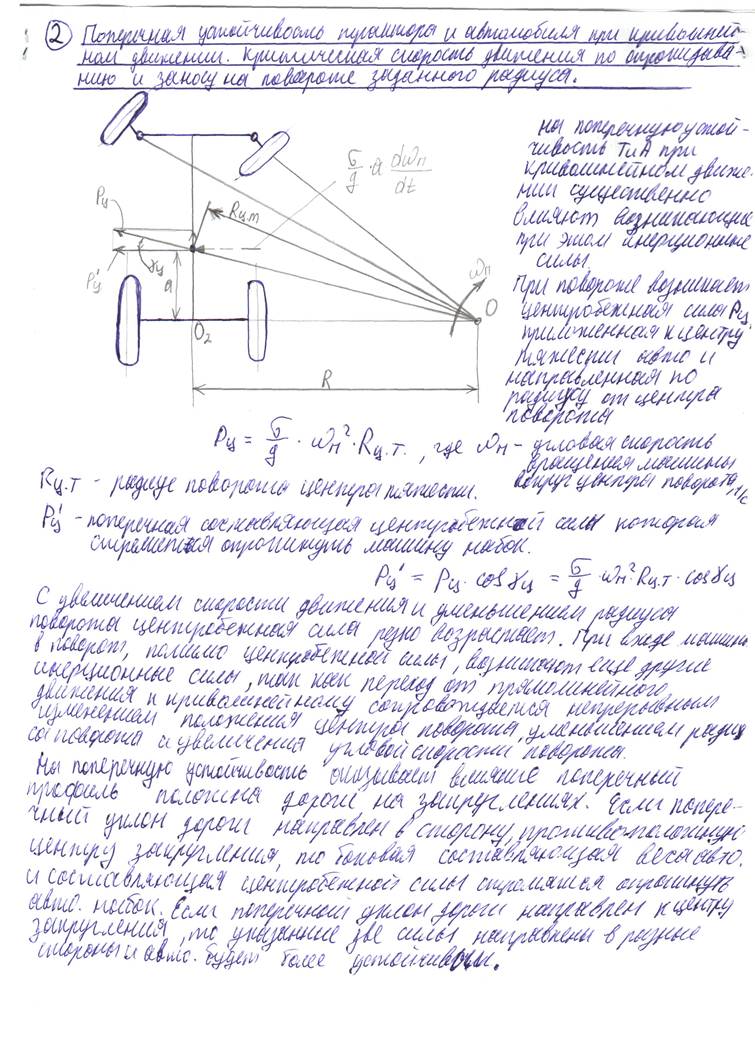 2 Поперечная устойчивость трактора и автомобиля при криволиней-
ном движении. Критическая скорость движения по опрокидыва-
нию и заносу на повороте заданного радиуса.
На поперечную устой-
чивость ТиА при
криволинейном движе-
нии существенно
влияют возникающие
при этом инерционные
силы.
При повороте возникает
центробежная сила Pц,
приложенная к центру
тяжести авто и
направленная по
радиусу от центра
поворота
G/g · a dωп/dt
Pц
Rц.т
P'ц
γц
a
ωп
O
O₂
R
Pц = G/g · ωп² · Rц.т. , где ωп - угловая скорость
вращения машины
вокруг центра поворота, 1/с
Rц.т - радиус поворота центра тяжести.
Pц' - поперечная составляющая центробежной силы которая
стремится опрокинуть машину набок.
Pц' = Pц · cosγц = G/g · ωп² Rц.т · cosγц
С увеличением скорости движения и уменьшением радиуса
поворота центробежная сила резко возрастает. При входе машины
в поворот, помимо центробежной силы, возникают еще другие
инерционные силы, так как переход от прямолинейного
движения к криволинейному сопровождается непрерывным
изменением положения центра поворота, уменьшением радиу
са поворота и увеличения угловой скорости поворота.
На поперечную устойчивость оказывает влияние поперечный
профиль полотна дороги на закруглениях. Если попере-
чный уклон дороги направлен в сторону, противоположную
центру закругления, то боковая составляющая веса авто.
и составляющая центробежной силы стремятся опрокинуть
авто. набок. Если поперечный уклон дороги направлен к центру
закругления, то указанные две силы направлены в разные
стороны и авто. будет более устойчивым.